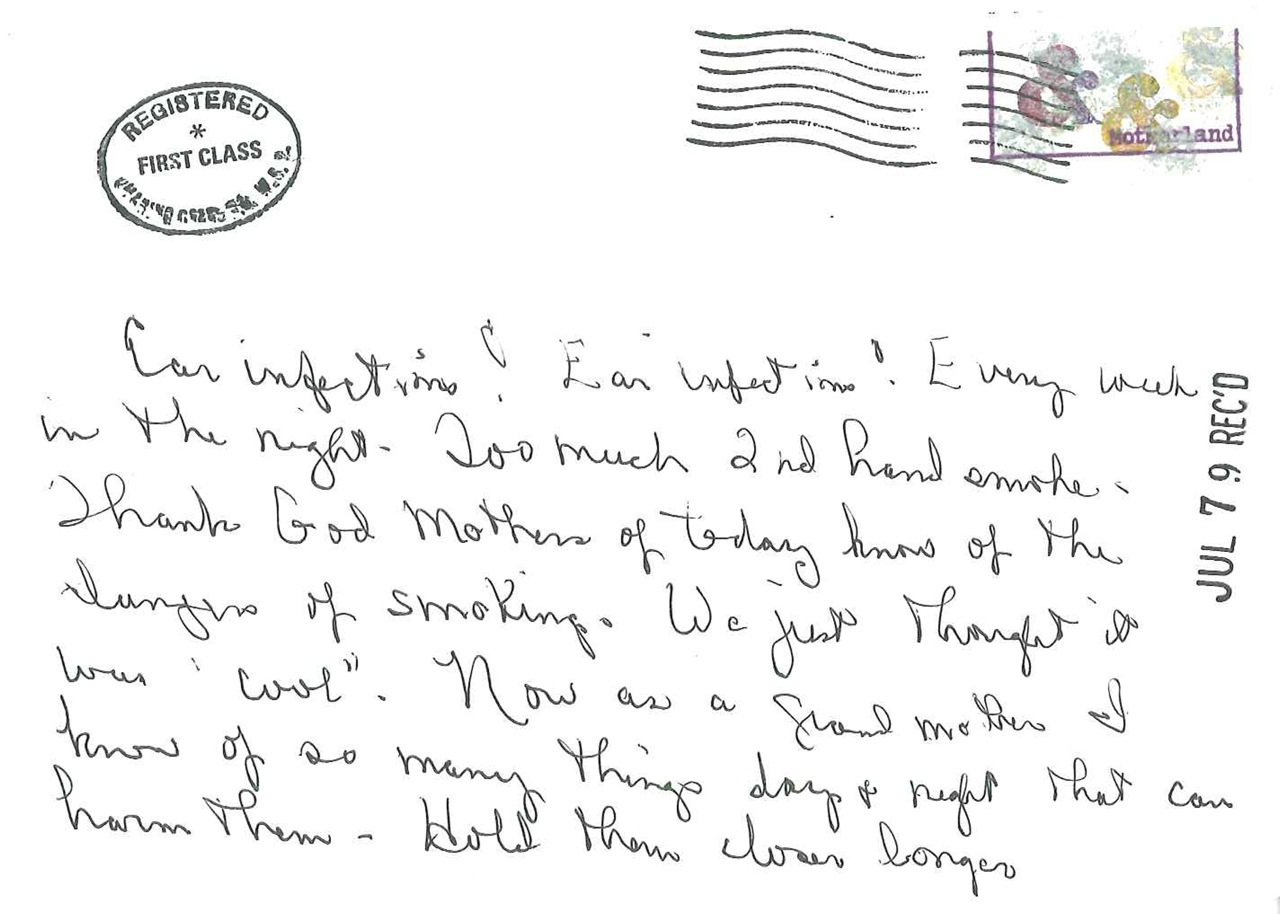 REGISTERED
*
FIRST CLASS
Motherland
JUL 7 9 REC'D
Ear infections! Ear infections! Every week
in the night - Too much 2nd hand smoke -
Thank God Mothers of today know of the
dangers of smoking. We just thought it
was "cool". Now as a grand mother I
know of so many things day & night that can
harm them - Hold them closer longer